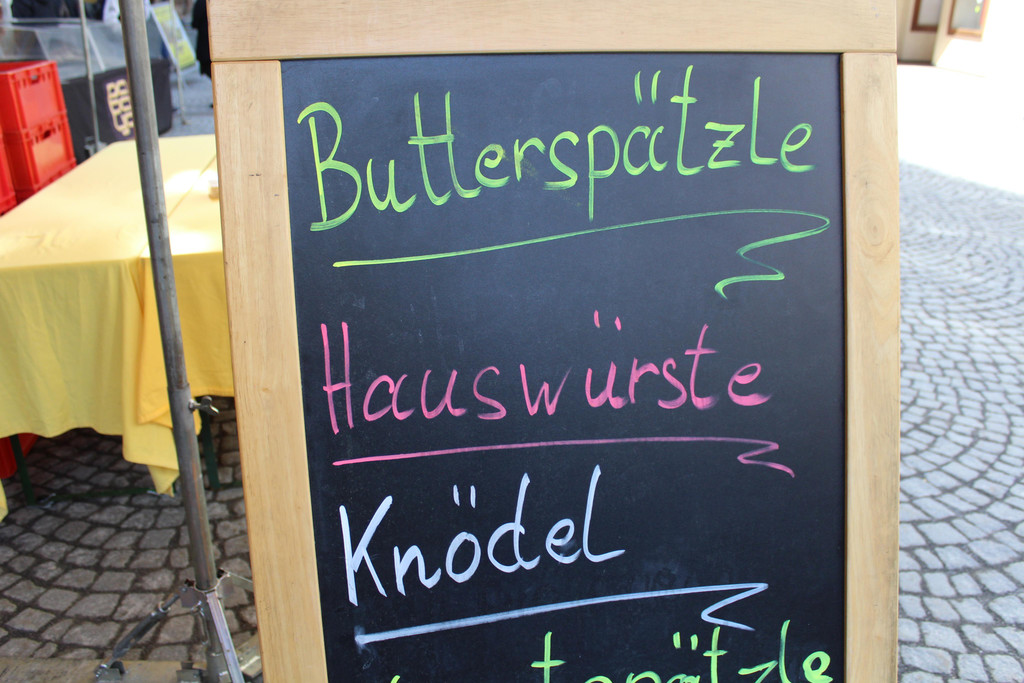 Butterspätzle
Hauswürste
Knödel